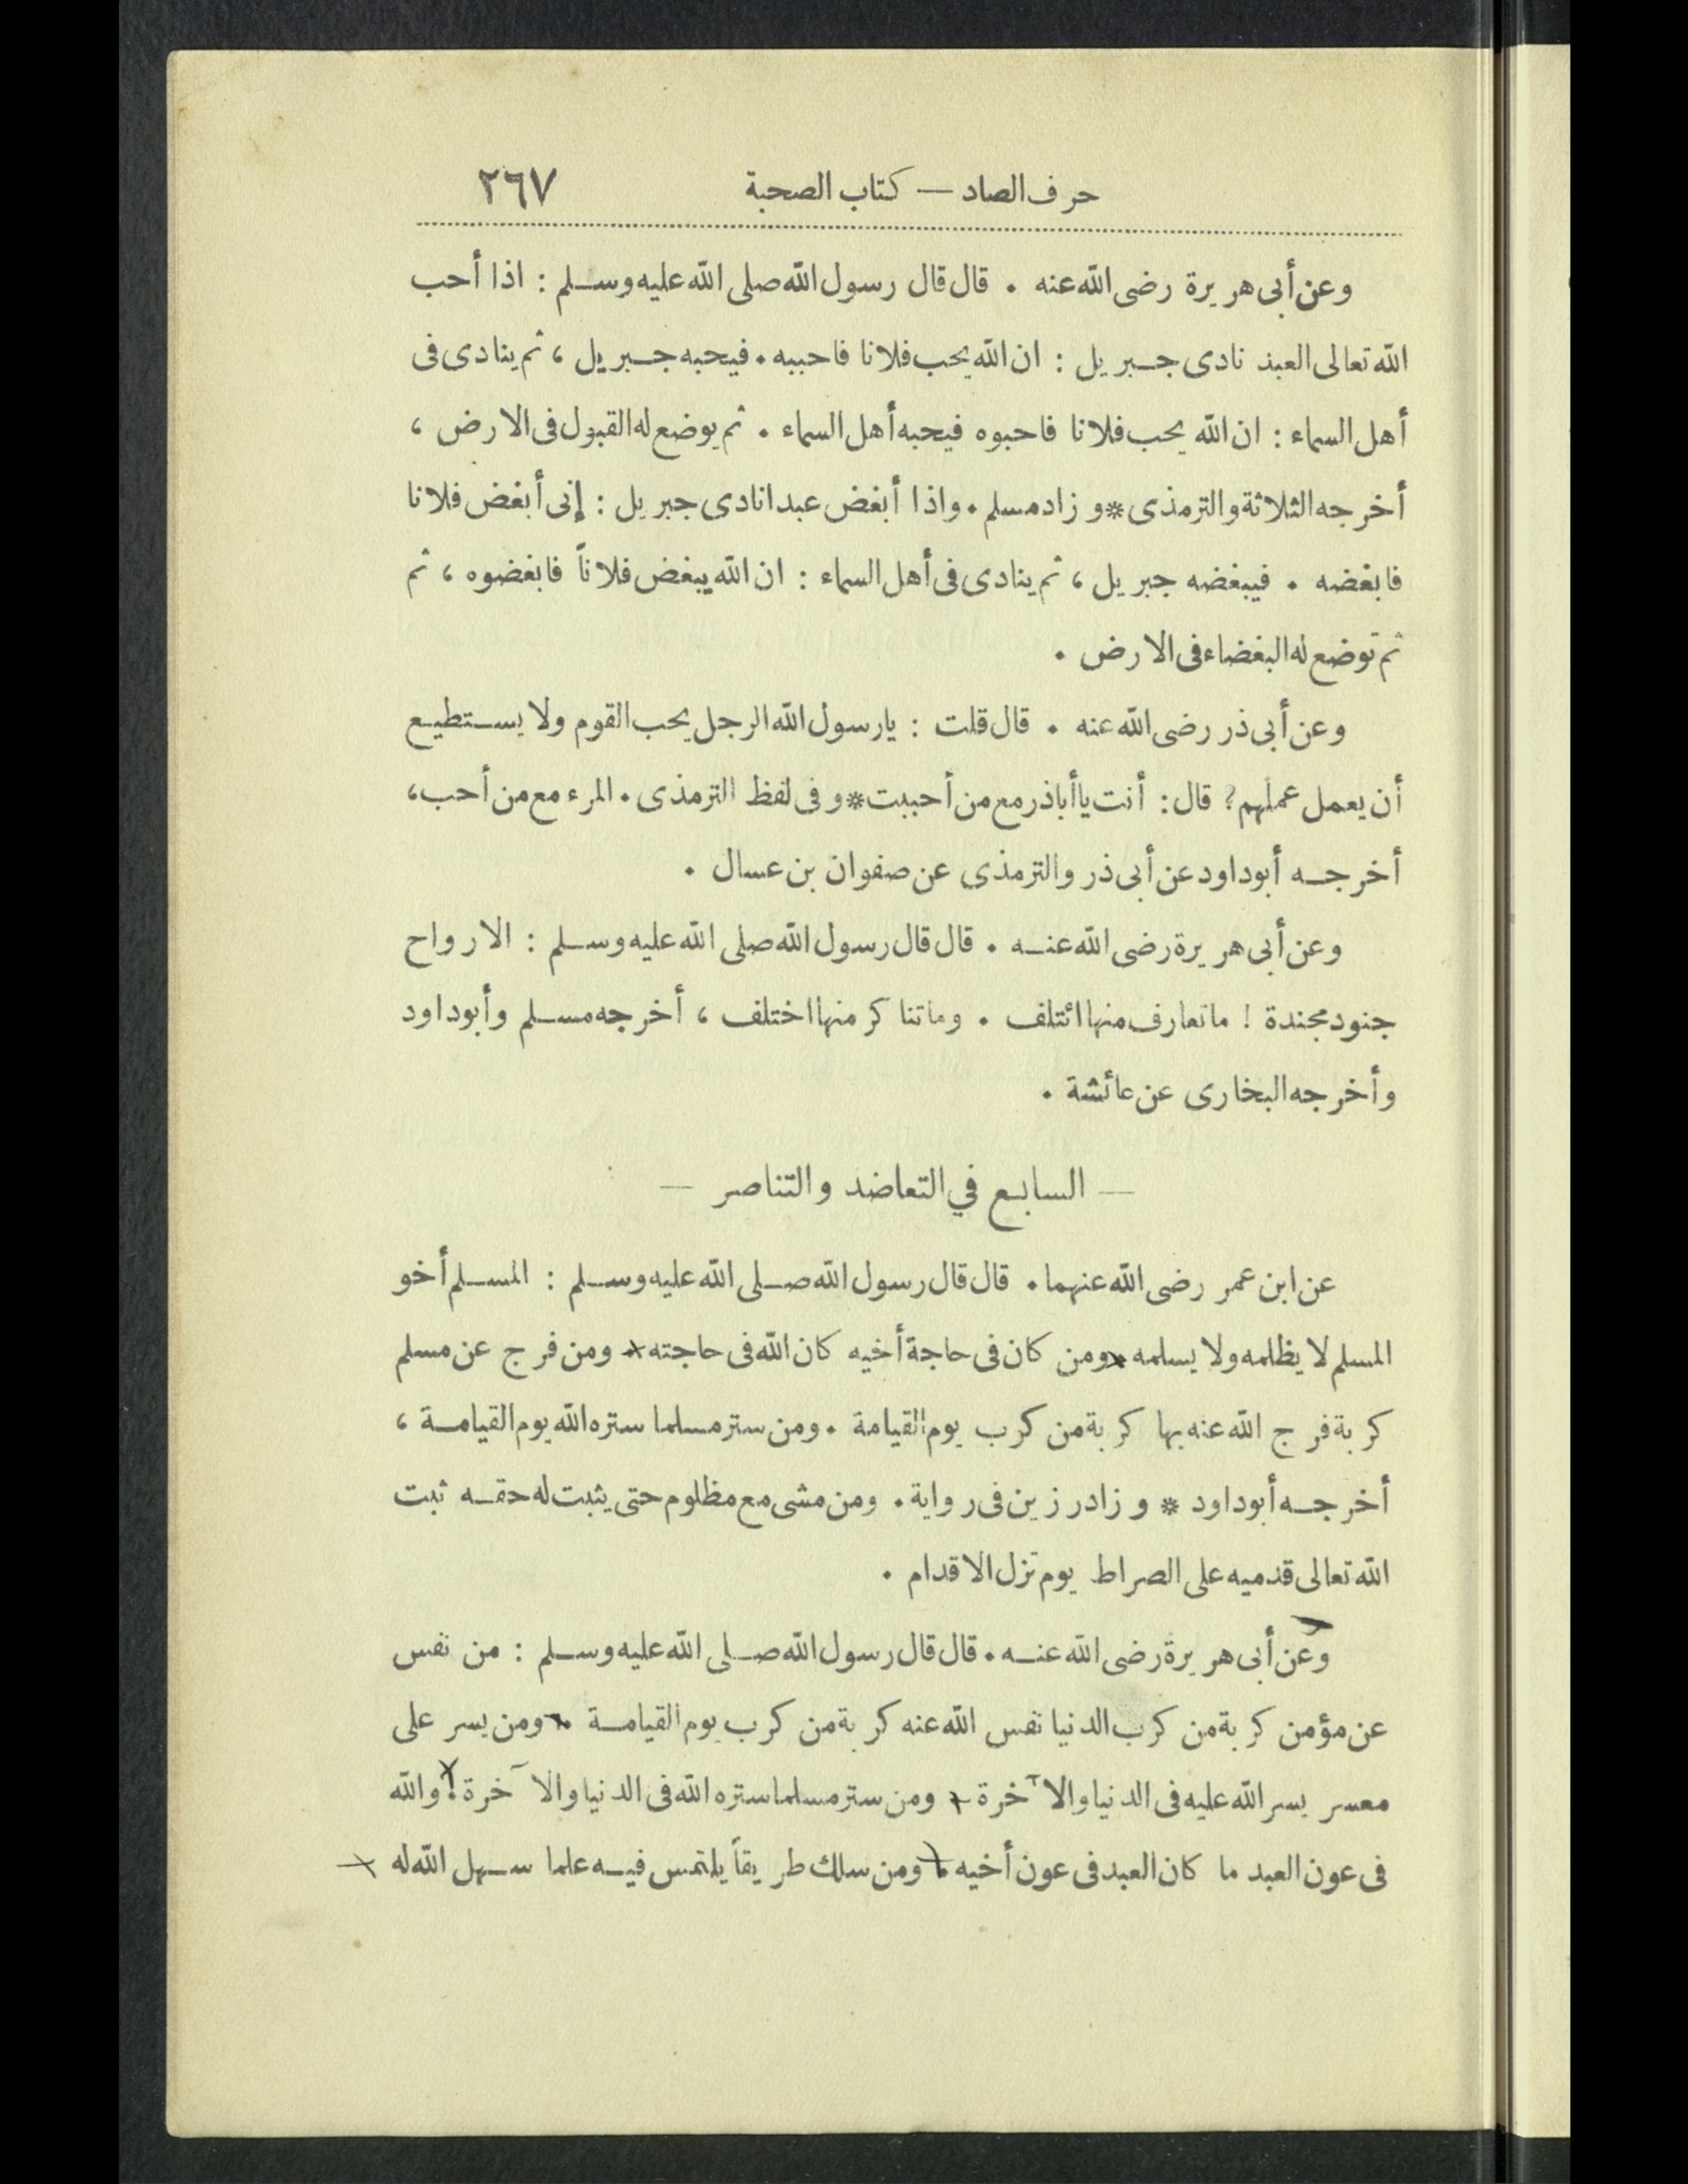 حرف الصاد — كتاب الصحبة ٢٦٧
وعن أبى هريرة رضى الله عنه . قال قال رسول الله صلى الله عليه وسلم : اذا أحب
الله تعالى العبد نادى جبريل : ان الله يحب فلانا فاحببه . فيحبه جبريل ، ثم ينادى فى
أهل السماء : ان الله يحب فلانا فاحبوه فيحبه أهل السماء . ثم يوضع له القبول فى الارض ،
أخرجه الثلاثة والترمذى * وزاد مسلم . واذا أبغض عبدا نادى جبريل : إنى أبغض فلانا
فابغضه . فيبغضه جبريل ، ثم ينادى فى أهل السماء : ان الله يبغض فلاناً فابغضوه ، ثم
ثم توضع له البغضاء فى الارض .
وعن أبى ذر رضى الله عنه . قال قلت : يارسول الله الرجل يحب القوم ولا يستطيع
أن يعمل عملهم ? قال : أنت يا أباذر مع من أحببت * وفى لفظ الترمذى . المرء مع من أحب ،
أخرجه أبوداود عن أبى ذر والترمذى عن صفوان بن عسال .
وعن أبى هريرة رضى الله عنه . قال قال رسول الله صلى الله عليه وسلم : الارواح
جنود مجندة ! ماتعارف منها ائتلف . وماتناكر منها اختلف ، أخرجه مسلم وأبوداود
وأخرجه البخارى عن عائشة .
— السابع في التعاضد والتناصر —
عن ابن عمر رضى الله عنهما . قال قال رسول الله صلى الله عليه وسلم : المسلم أخو
المسلم لا يظلمه ولا يسلمه * ومن كان فى حاجة أخيه كان الله فى حاجته * ومن فرج عن مسلم
كربة فرج الله عنه بها كربة من كرب يوم القيامة . ومن ستر مسلما ستره الله يوم القيامة ،
أخرجه أبوداود * وزاد رزين فى رواية . ومن مشى مع مظلوم حتى يثبت له حقه ثبت
الله تعالى قدميه على الصراط يوم تزل الاقدام .
وعن أبى هريرة رضى الله عنه . قال قال رسول الله صلى الله عليه وسلم : من نفس
عن مؤمن كربة من كرب الدنيا نفس الله عنه كربة من كرب يوم القيامة . ومن يسر على
معسر يسر الله عليه فى الدنيا والآخرة . ومن ستر مسلما ستره الله فى الدنيا والآخرة ! والله
فى عون العبد ما كان العبد فى عون أخيه . ومن سلك طريقاً يلتمس فيه علما سهل الله له